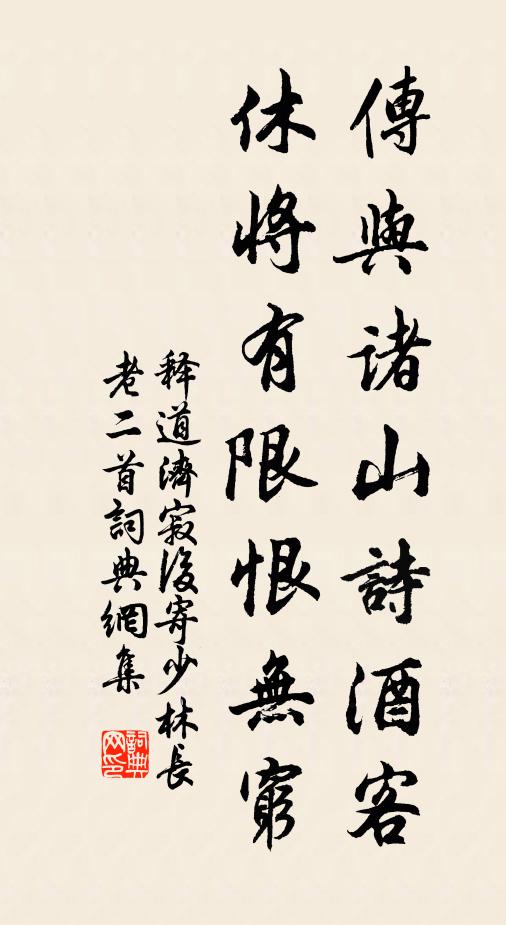 傳與諸山詩酒客
休將有限恨無窮
释道濟寂後寄少林長
老二首詞典網集
詞典
网印